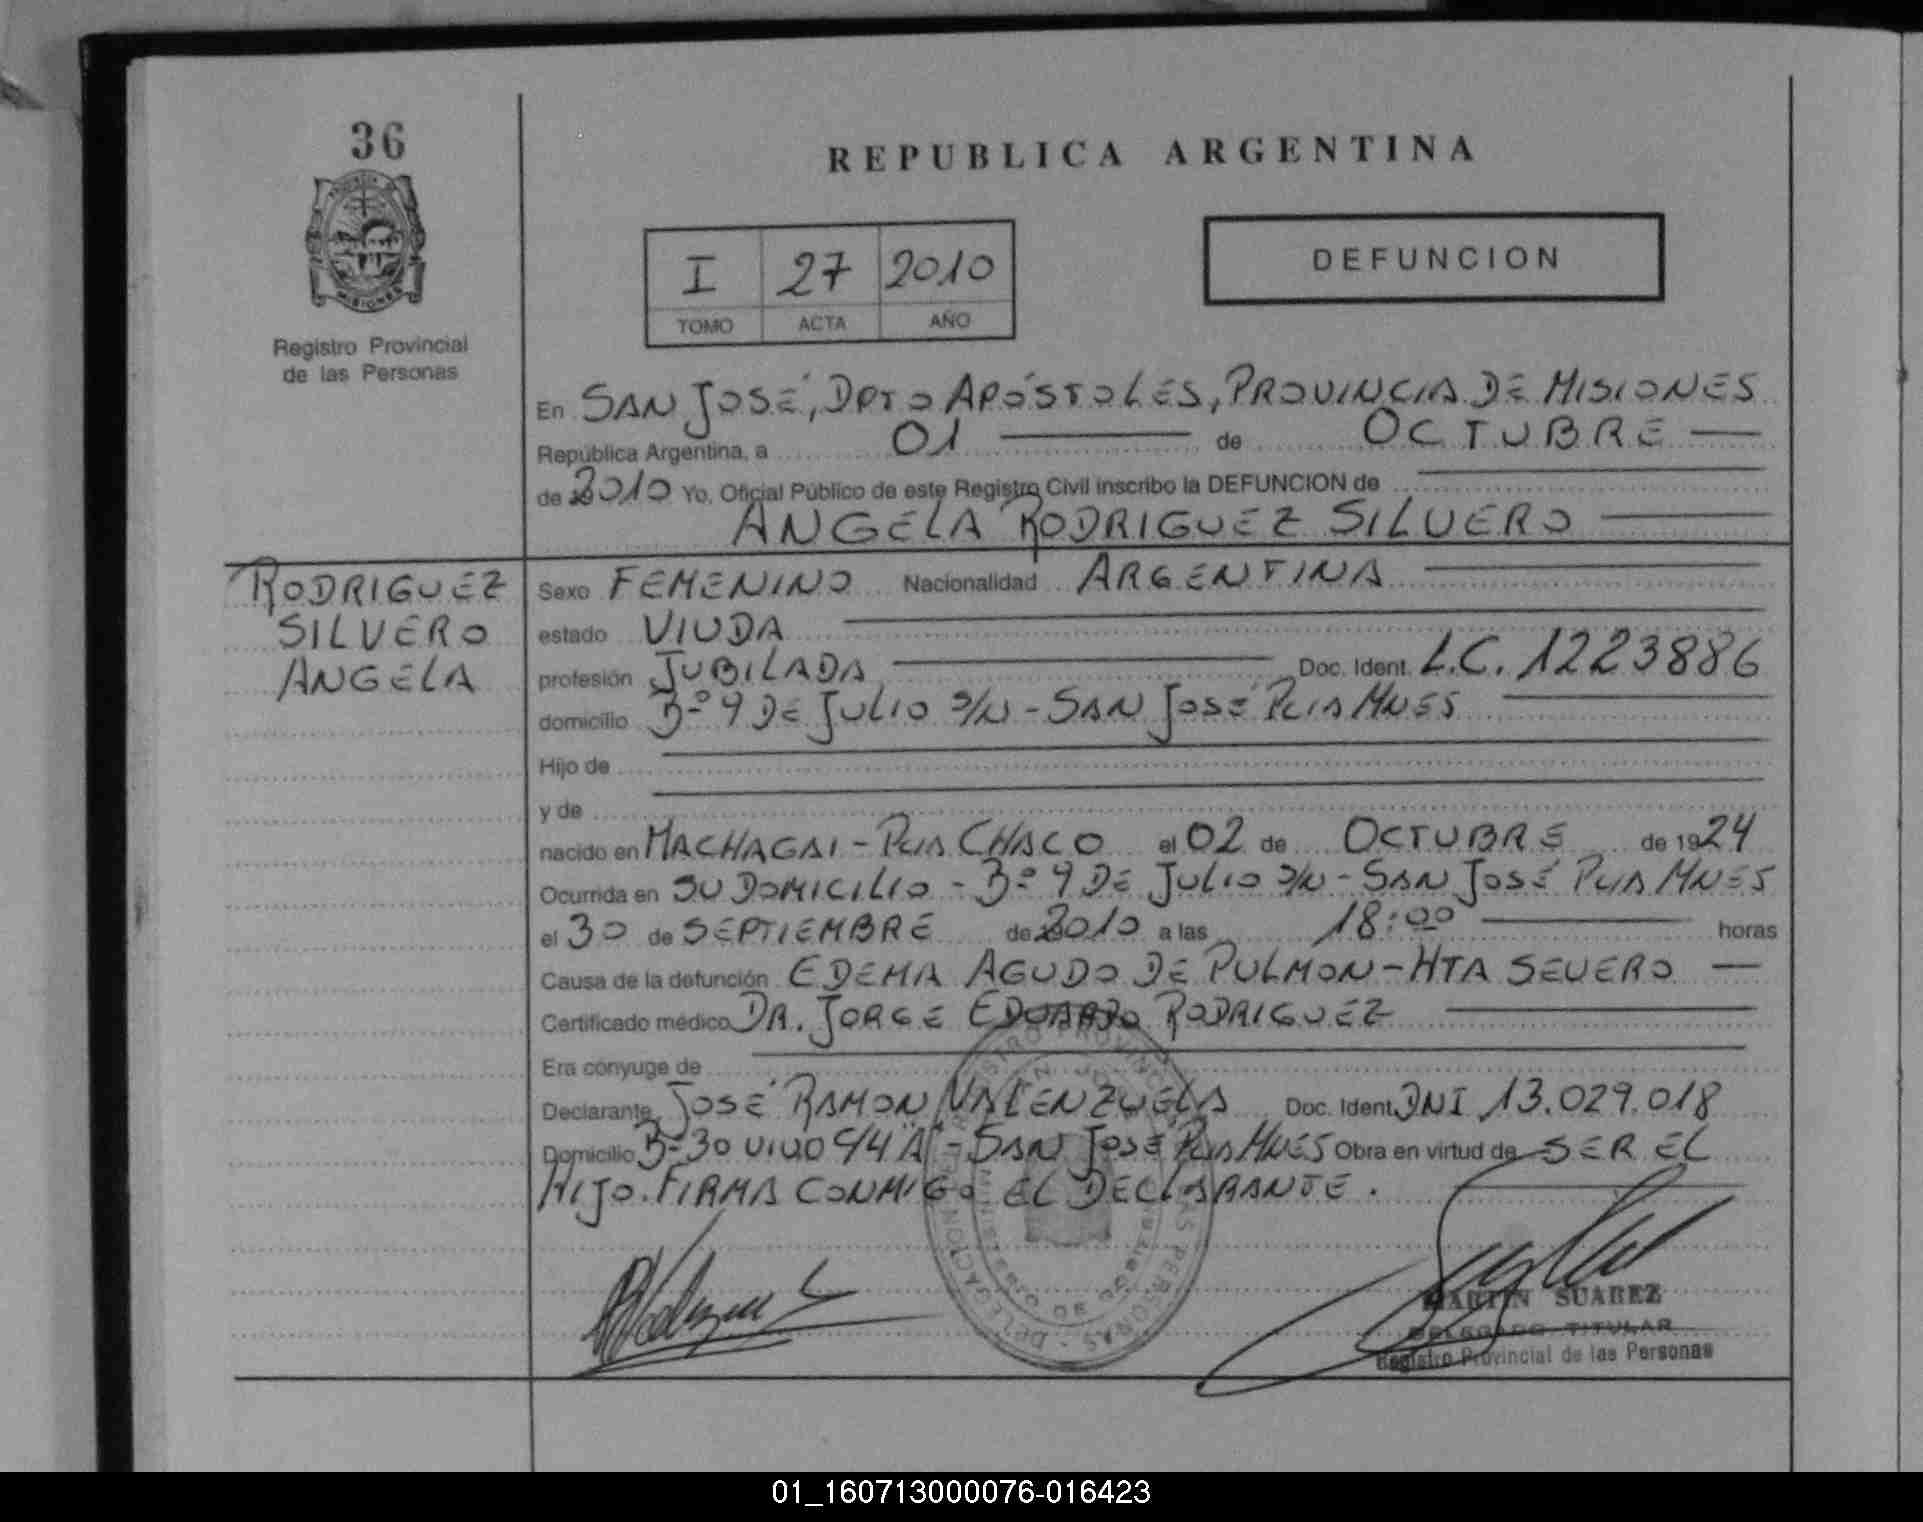 36
REPUBLICA ARGENTINA
PROVINCIA DE
MISIONES
Registro Provincial
de las Personas
I 27 2010
TOMO ACTA AÑO
DEFUNCION
En SAN JOSÉ, DPTO APÓSTOLES, PROVINCIA DE MISIONES
República Argentina, a 01 de OCTUBRE
de 2010 Yo, Oficial Público de este Registro Civil inscribo la DEFUNCION de
ANGELA RODRIGUEZ SILVERO
RODRIGUEZ
SILVERO
ANGELA
Sexo FEMENINO Nacionalidad ARGENTINA
estado VIUDA
profesión JUBILADA Doc. Ident. L.C. 1223886
domicilio Bº 9 DE JULIO S/N - SAN JOSÉ PCIA MNES
Hijo de
y de
nacido en MACHAGAI - PCIA CHACO el 02 de OCTUBRE de 1924
Ocurrida en SU DOMICILIO - Bº 9 DE JULIO S/N - SAN JOSÉ PCIA MNES
el 30 de SEPTIEMBRE de 2010 a las 18:00 horas
Causa de la defunción EDEMA AGUDO DE PULMON - HTA SEVERO
Certificado médico DR. JORGE EDUARDO RODRIGUEZ
Era cónyuge de
Declarante JOSÉ RAMON VALENZUELA Doc. Ident. DNI 13.029.018
Domicilio Bº 30 VIV C/4 "A" - SAN JOSÉ PCIA MNES Obra en virtud de SER EL
HIJO. FIRMA CONMIGO EL DECLARANTE.
MARTIN SUAREZ
DELEGADO TITULAR
Registro Provincial de las Personas
01_160713000076-016423